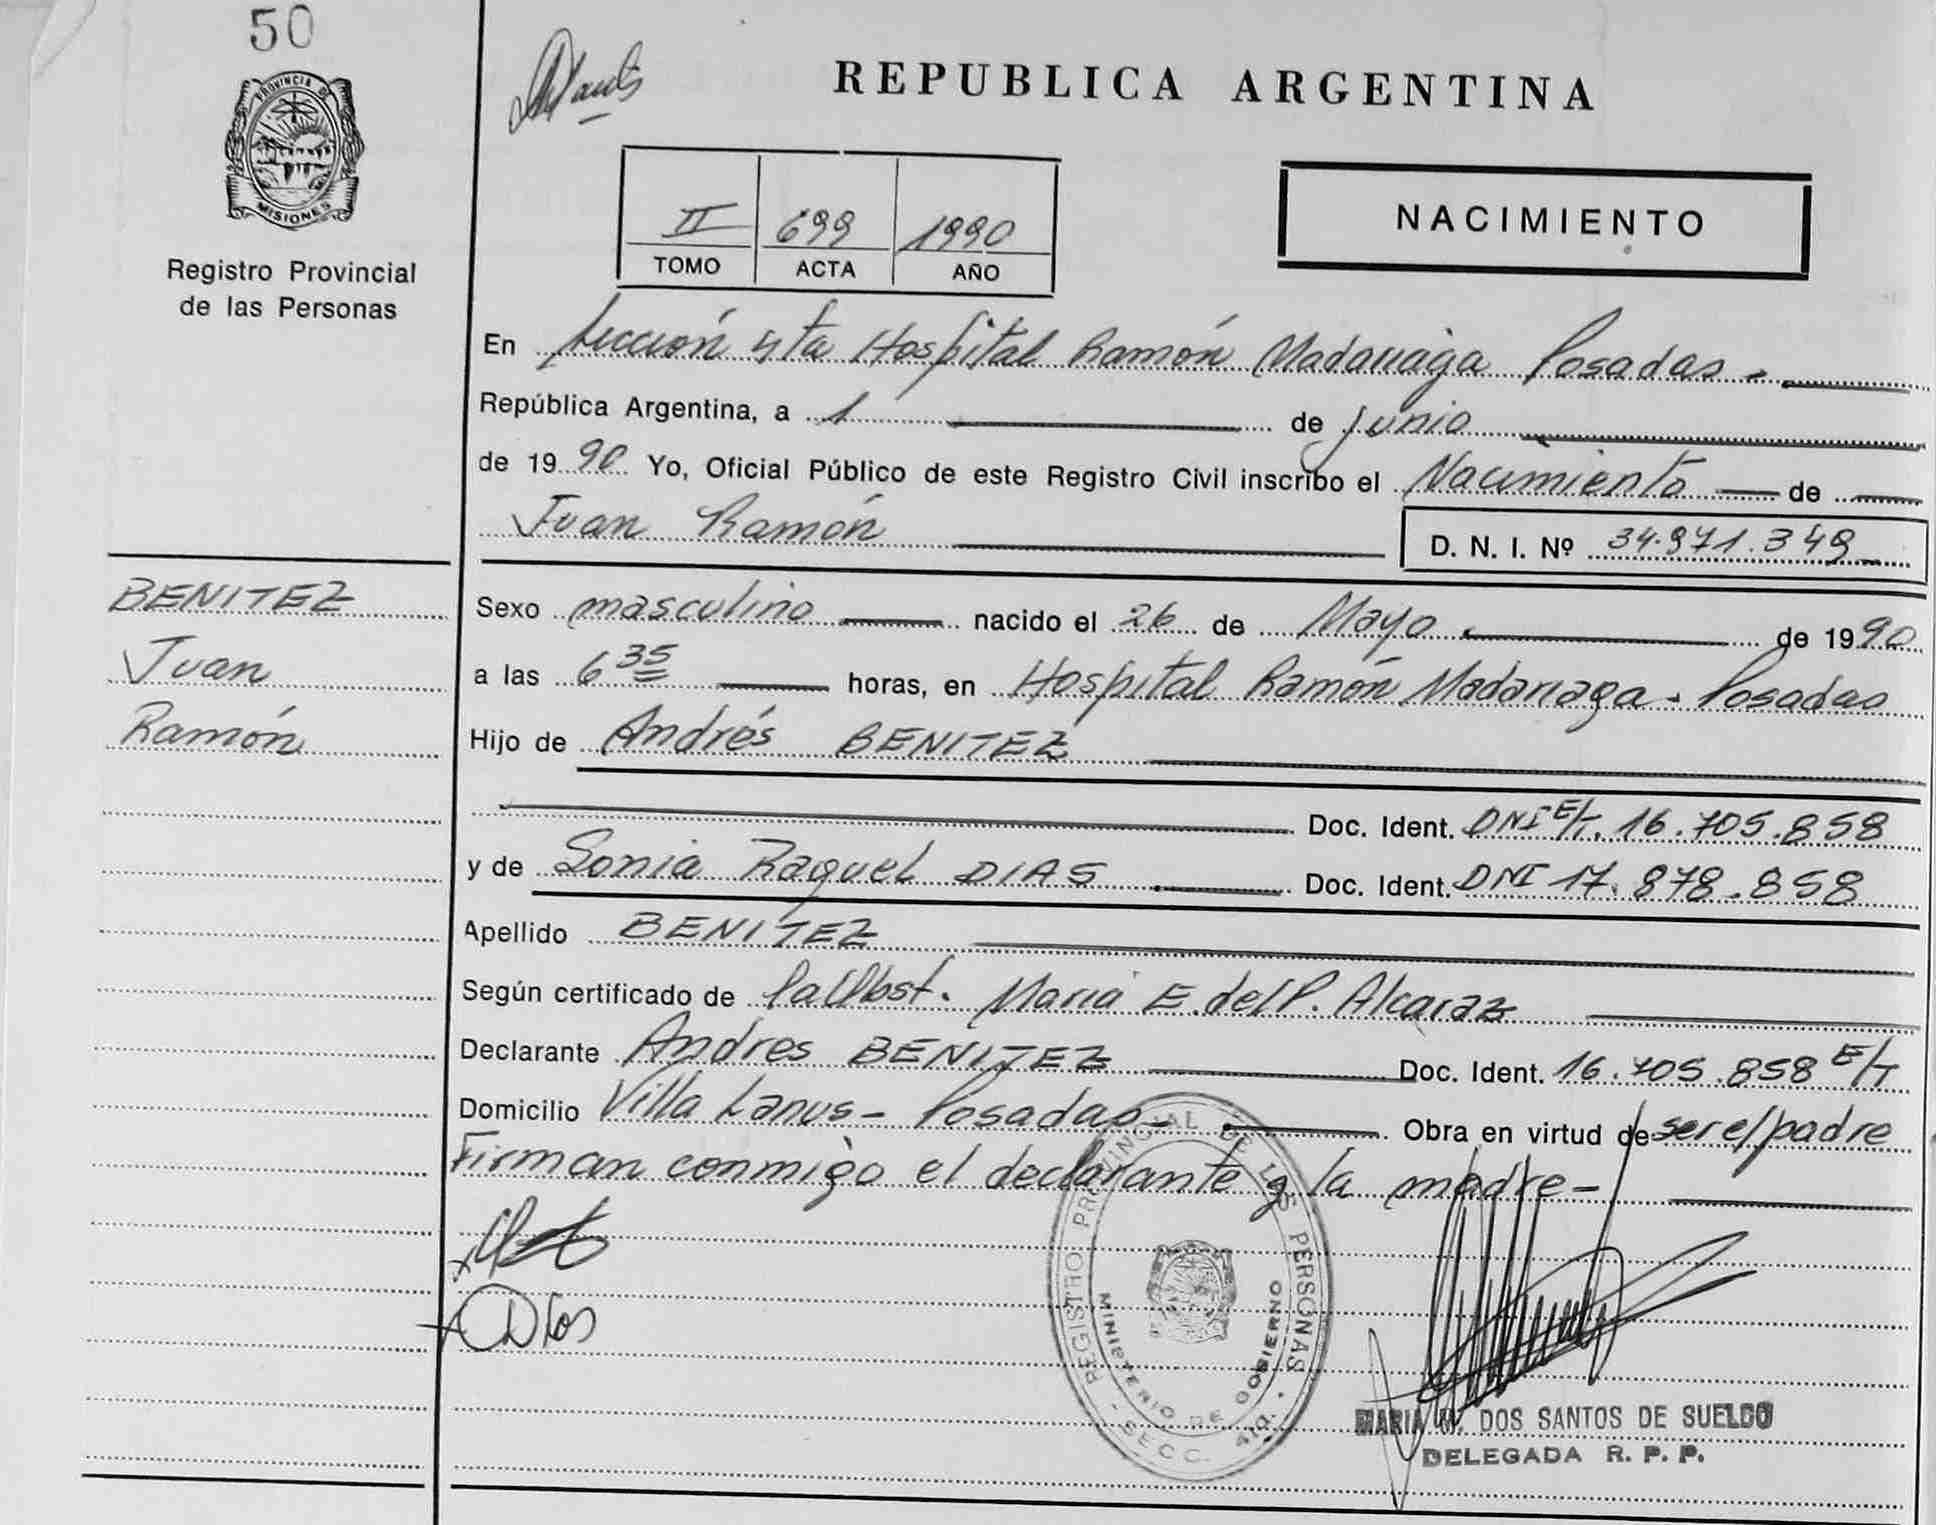 50
PROVINCIA DE
MISIONES
Registro Provincial
de las Personas
REPUBLICA ARGENTINA
II 699 1990
TOMO ACTA AÑO
NACIMIENTO
En Sección 4ta Hospital Ramón Madariaga Posadas -
República Argentina, a 1 de Junio
de 1990 Yo, Oficial Público de este Registro Civil inscribo el Nacimiento de
Juan Ramón D. N. I. Nº 34.971.349
BENITEZ
Juan
Ramón
Sexo masculino nacido el 26 de Mayo de 1990
a las 6 35 horas, en Hospital Ramón Madariaga - Posadas
Hijo de Andrés BENITEZ
Doc. Ident. DNI E/T. 16.705.858
y de Sonia Raquel DIAS Doc. Ident. DNI 17.878.858
Apellido BENITEZ
Según certificado de la Obst. Maria E. del P. Alcaraz
Declarante Andres BENITEZ Doc. Ident. 16.705.858 E/T
Domicilio Villa Lanus - Posadas - Obra en virtud de ser el padre
Firman conmigo el declarante y la madre -
REGISTRO PROVINCIAL DE LAS PERSONAS
MINISTERIO DE GOBIERNO
SECC. 4ta.
MARIA M. DOS SANTOS DE SUELDO
DELEGADA R. P. P.